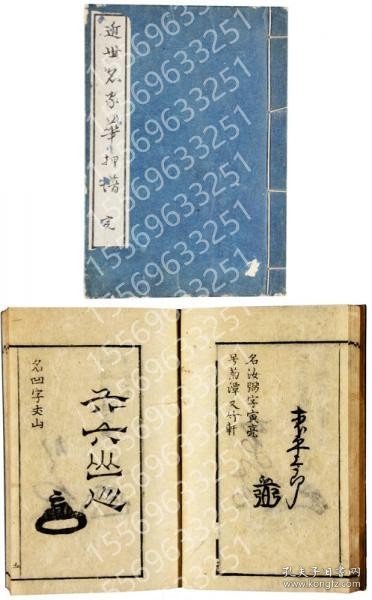 近世名家華押譜 完
名汝弼字寅亮
号菊潭又竹軒
名凹字丈山
六六山
15569633251
孔夫子旧书网
www.kongfz.com